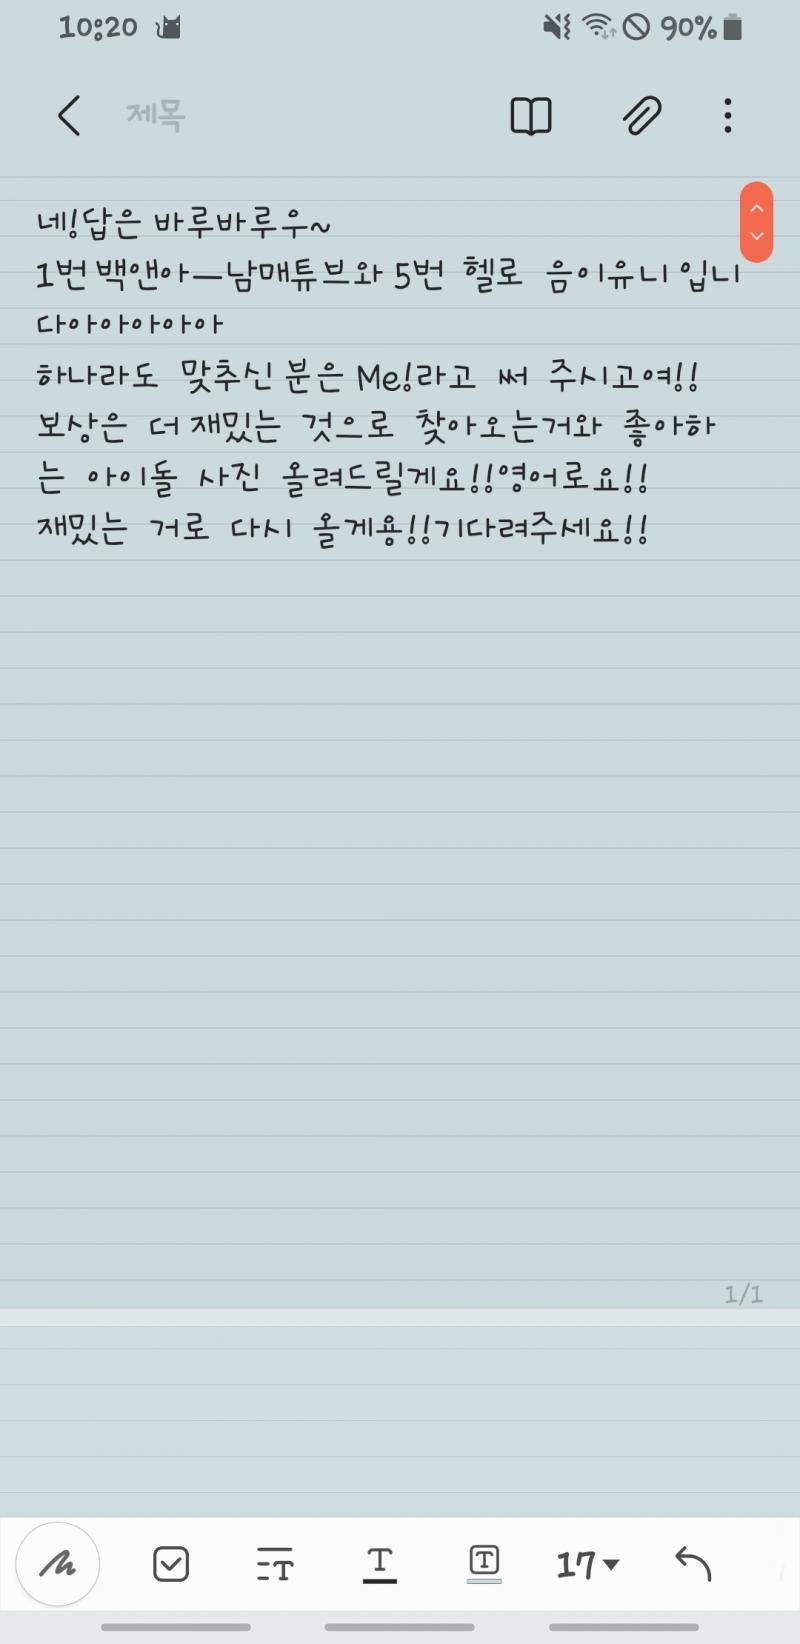 10:20 90%
제목
네!답은 바루바루우~
1번 백앤아—남매튜브와 5번 헬로 음이유니 입니
다아아아아아아
하나라도 맞추신 분은 Me!라고 써 주시고여!!
보상은 더 재밌는 것으로 찾아오는거와 좋아하
는 아이돌 사진 올려드릴게요!!영어로요!!
재밌는 거로 다시 올게용!!기다려주세요!!
1/1
T T T 17